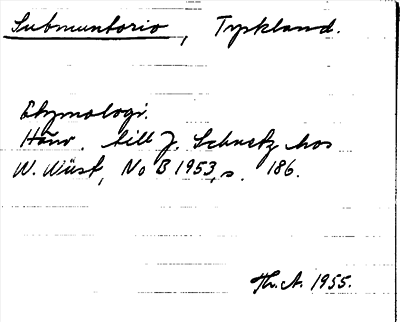 Submuntorio, Tyskland.
Etymologi.
Hänv. till J. Schnetz hos
W. Wüst, No B 1953, s. 186.
Th. A. 1955.